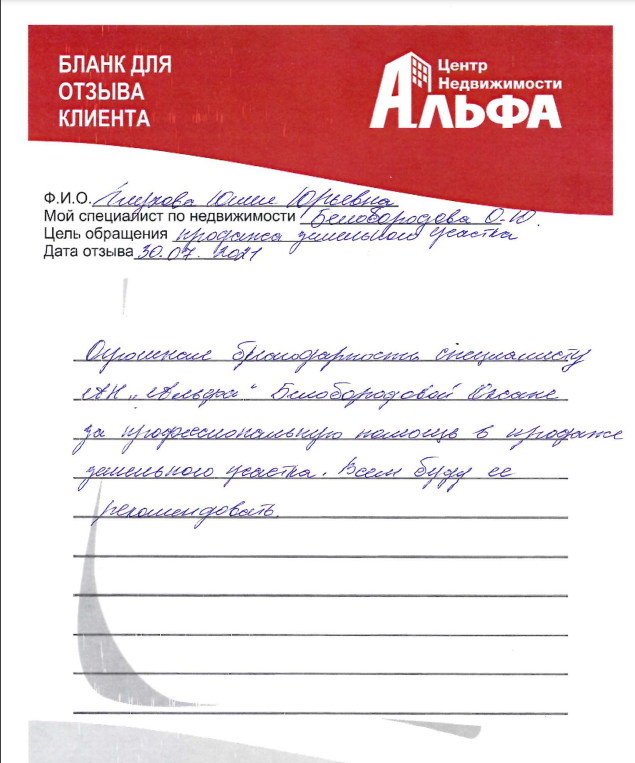 БЛАНК ДЛЯ
ОТЗЫВА
КЛИЕНТА
Центр
Недвижимости
АЛЬФА
Ф.И.О. Юлия Юрьевна
Мой специалист по недвижимости Белобородова О.Ю.
Цель обращения продажа земельного участка
Дата отзыва 30.07.2021
Огромная благодарность специалисту
АН „Альфа" Белобородовой Оксане
за профессиональную помощь в продаже
земельного участка. Всем буду ее
рекомендовать.